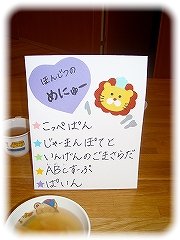 ほんじつの
めにゅー
こっぺぱん
じゃーまんぽてと
いんげんのごまさらだ
ABCすーぷ
ぱいん